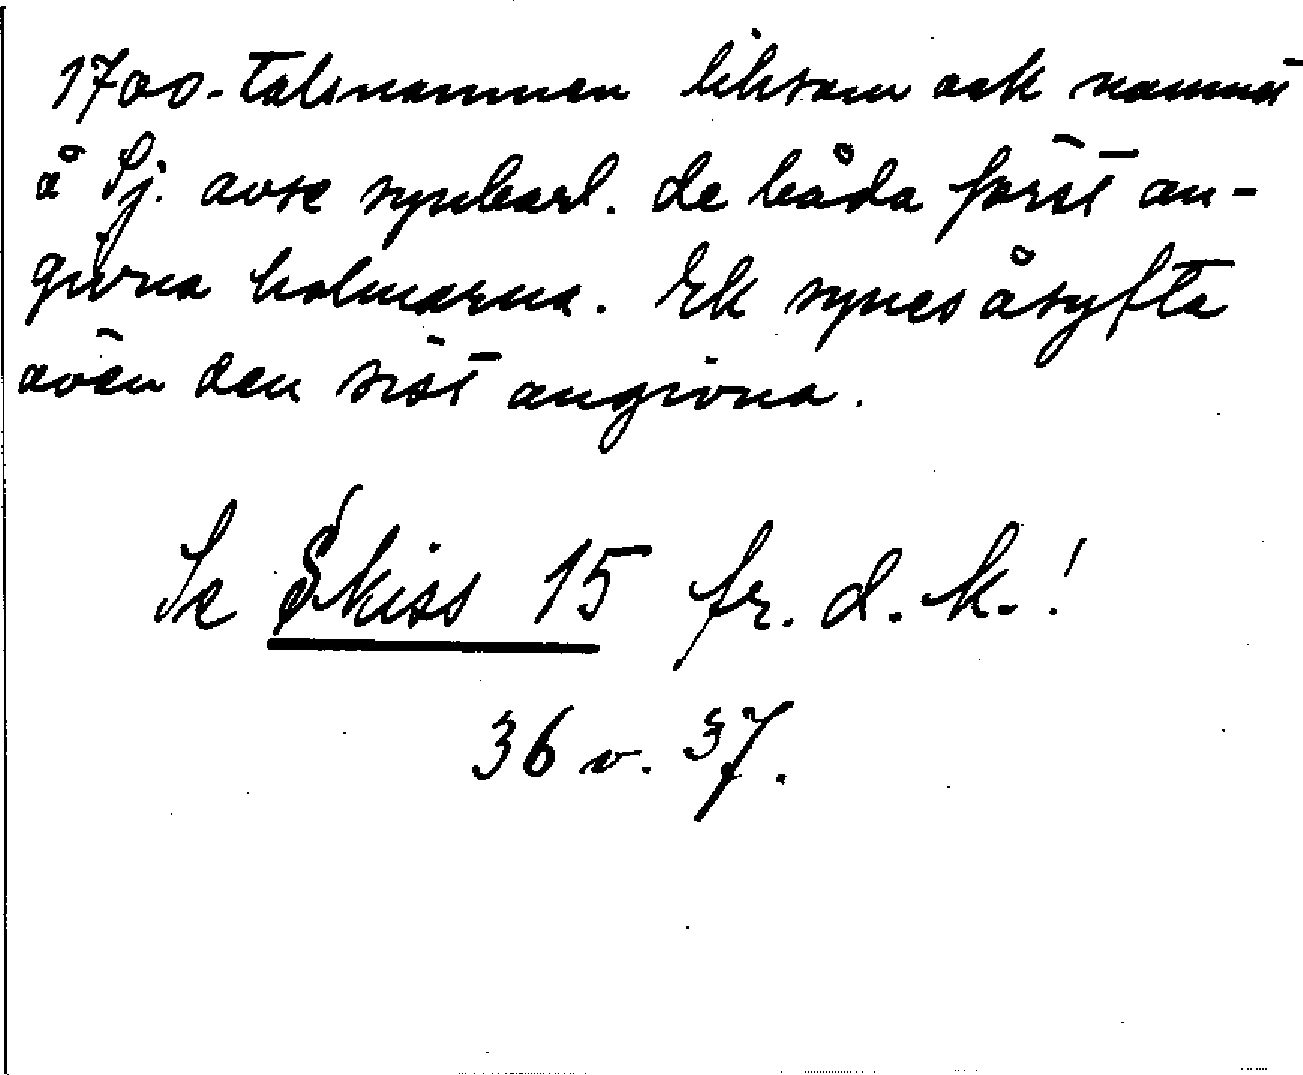 1700-talsnamnen liksom ock namnet
å Sj. avse synbarl. de båda först an-
givna holmarna. Ek synes åsyfta
även den sist angivna.
Se Skiss 15 fr. d. k.!
36 v. 37.